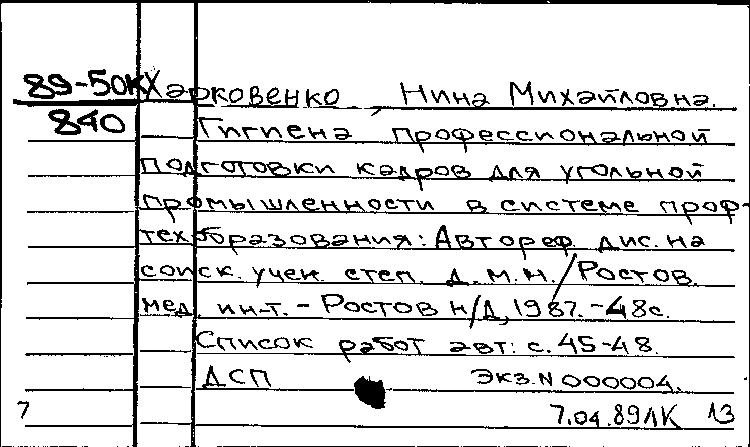 89-50К Харковенко, Нина Михайловна.
840 Гигиена профессиональной
подготовки кадров для угольной
промышленности в системе проф-
техобразования: Автореф. дис. на
соиск. учен. степ. д.м.н. / Ростов.
мед. ин-т. - Ростов н/Д, 1987. - 48с.
Список работ авт: с. 45-48.
ДСП Экз. N 000004.
7 7.04.89ЛК 13